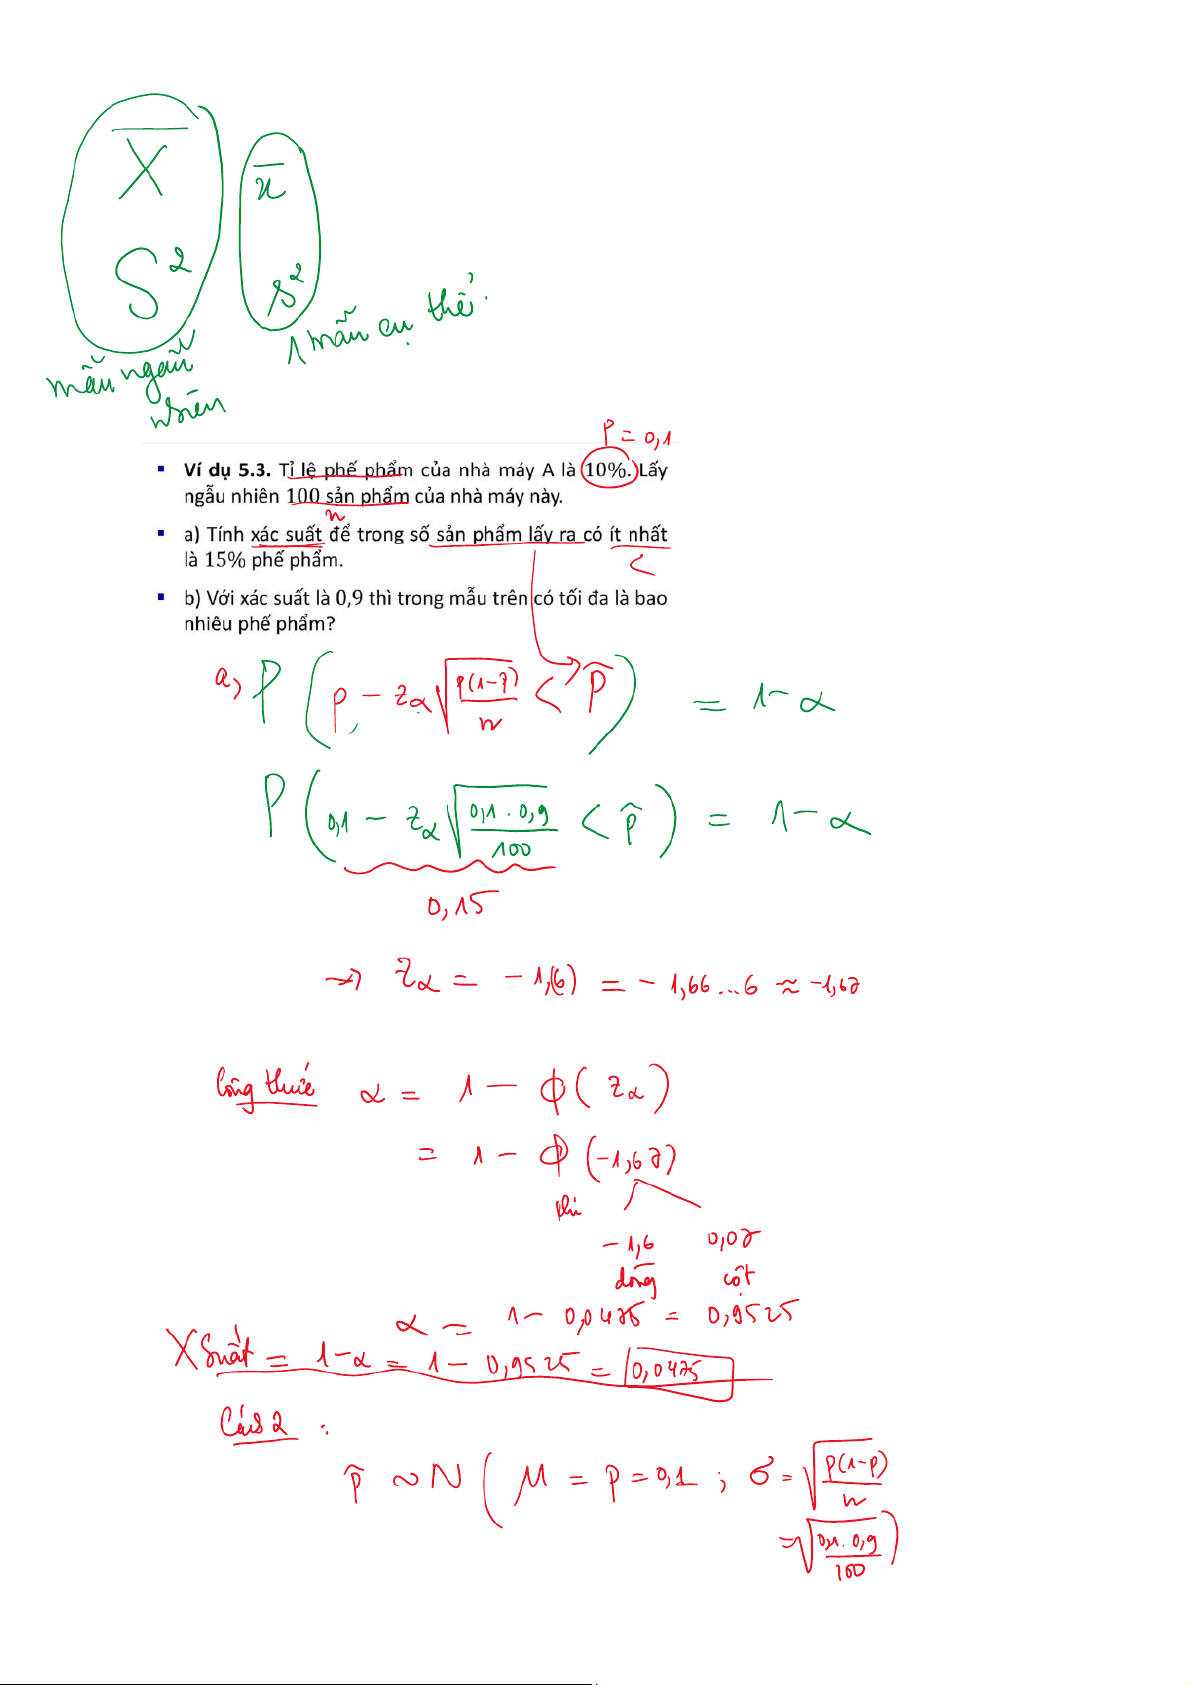 X̅
x̅
S²
s²
mẫu ngẫu
nhiên
1 mẫu cụ thể.
P = 0,1
▪ Ví dụ 5.3. Tỉ lệ phế phẩm của nhà máy A là 10%. Lấy
ngẫu nhiên 100 sản phẩm của nhà máy này.
n
▪ a) Tính xác suất để trong số sản phẩm lấy ra có ít nhất
là 15% phế phẩm.
<
▪ b) Với xác suất là 0,9 thì trong mẫu trên có tối đa là bao
nhiêu phế phẩm?
a) P ( p - z_α √(p(1-p)/n) < p̂ ) = 1 - α
P ( 0,1 - z_α √(0,1 . 0,9/100) < p̂ ) = 1 - α
0,15
→ z_α = -1,(6) = -1,66...6 ≈ -1,67
Công thức α = 1 - ϕ ( z_α )
= 1 - ϕ (-1,67)
phi
-1,6 0,07
dòng cột
α = 1 - 0,0475 = 0,9525
Xsuất = 1-α = 1 - 0,9525 = 0,0475
Cách 2 :
p̂ ~ N ( M = p = 0,1 ; σ = √(p(1-p)/n)
= √(0,1 . 0,9/100) )